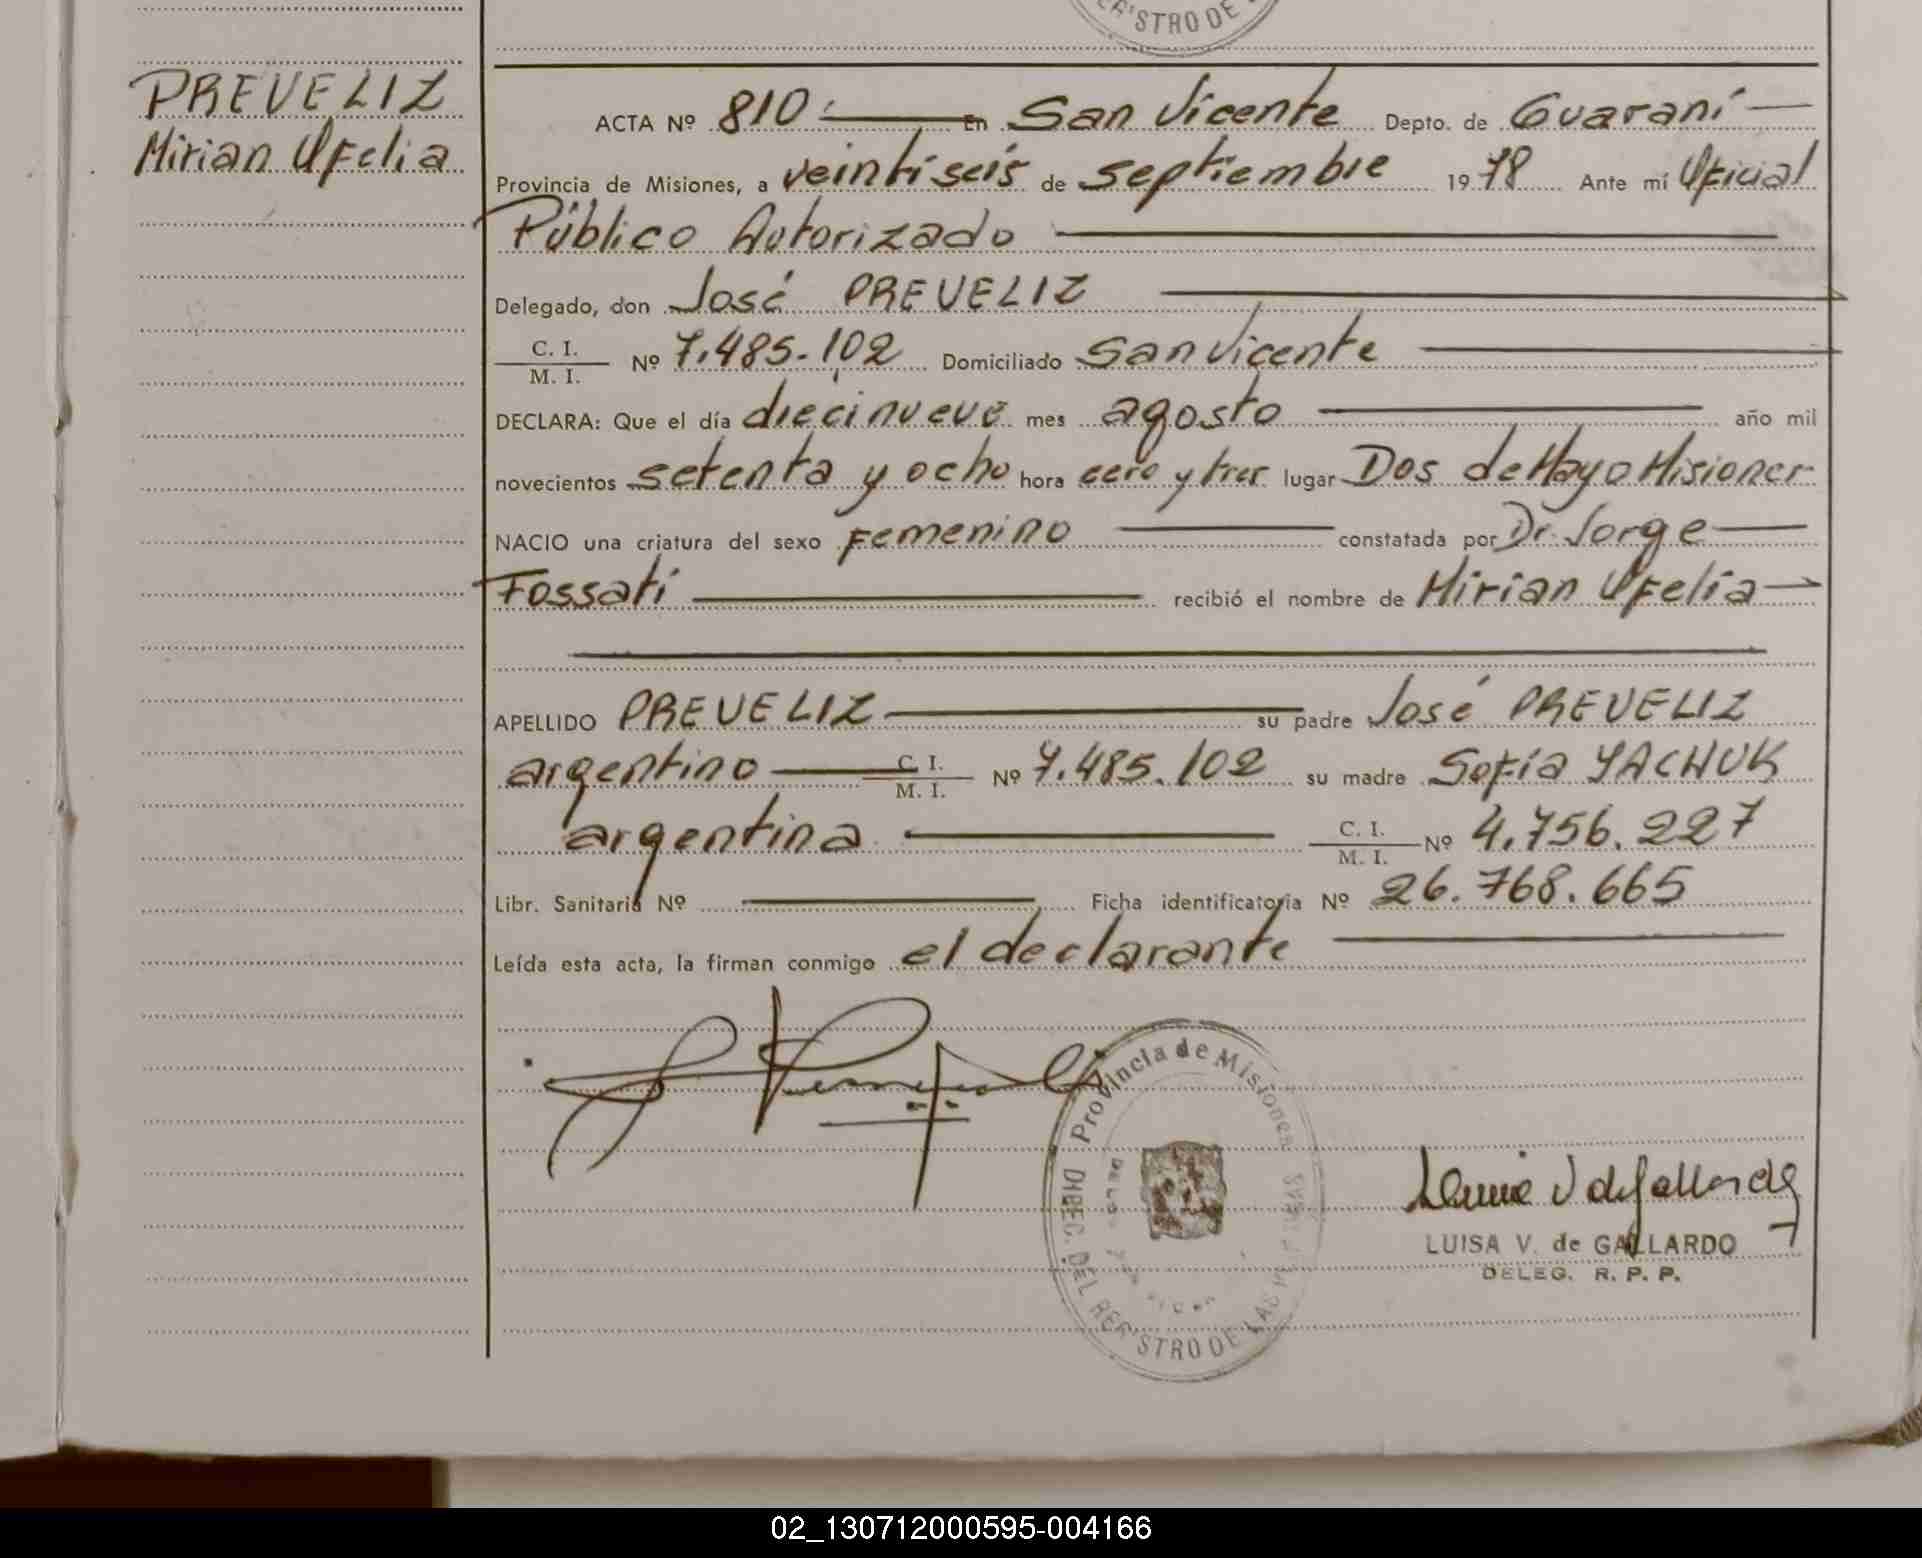 ER'STRO DE
PREVELIZ
Mirian Ofelia
ACTA Nº 810.- En San Vicente Depto. de Guaraní
Provincia de Misiones, a veintiseis de septiembre 1978 Ante mí Oficial
Público Autorizado
Delegado, don José PREVELIZ
C. I. / M. I. Nº 7.485.102 Domiciliado San Vicente
DECLARA: Que el día diecinueve mes agosto año mil
novecientos setenta y ocho hora cero y tres lugar Dos de Mayo Misiones
NACIO una criatura del sexo Femenino constatada por Dr. Jorge
Fossati recibió el nombre de Mirian Ofelia
APELLIDO PREVELIZ su padre José PREVELIZ
argentino C. I. / M. I. Nº 7.485.102 su madre Sofía YACHUK
argentina C. I. / M. I. Nº 4.756.227
Libr. Sanitaria Nº Ficha identificatoria Nº 26.768.665
Leída esta acta, la firman conmigo el declarante
Provincia de Misiones
DIREC. DEL REG'STRO DE LAS
LUISA V. de GALLARDO
DELEG. R. P. P.
02_130712000595-004166